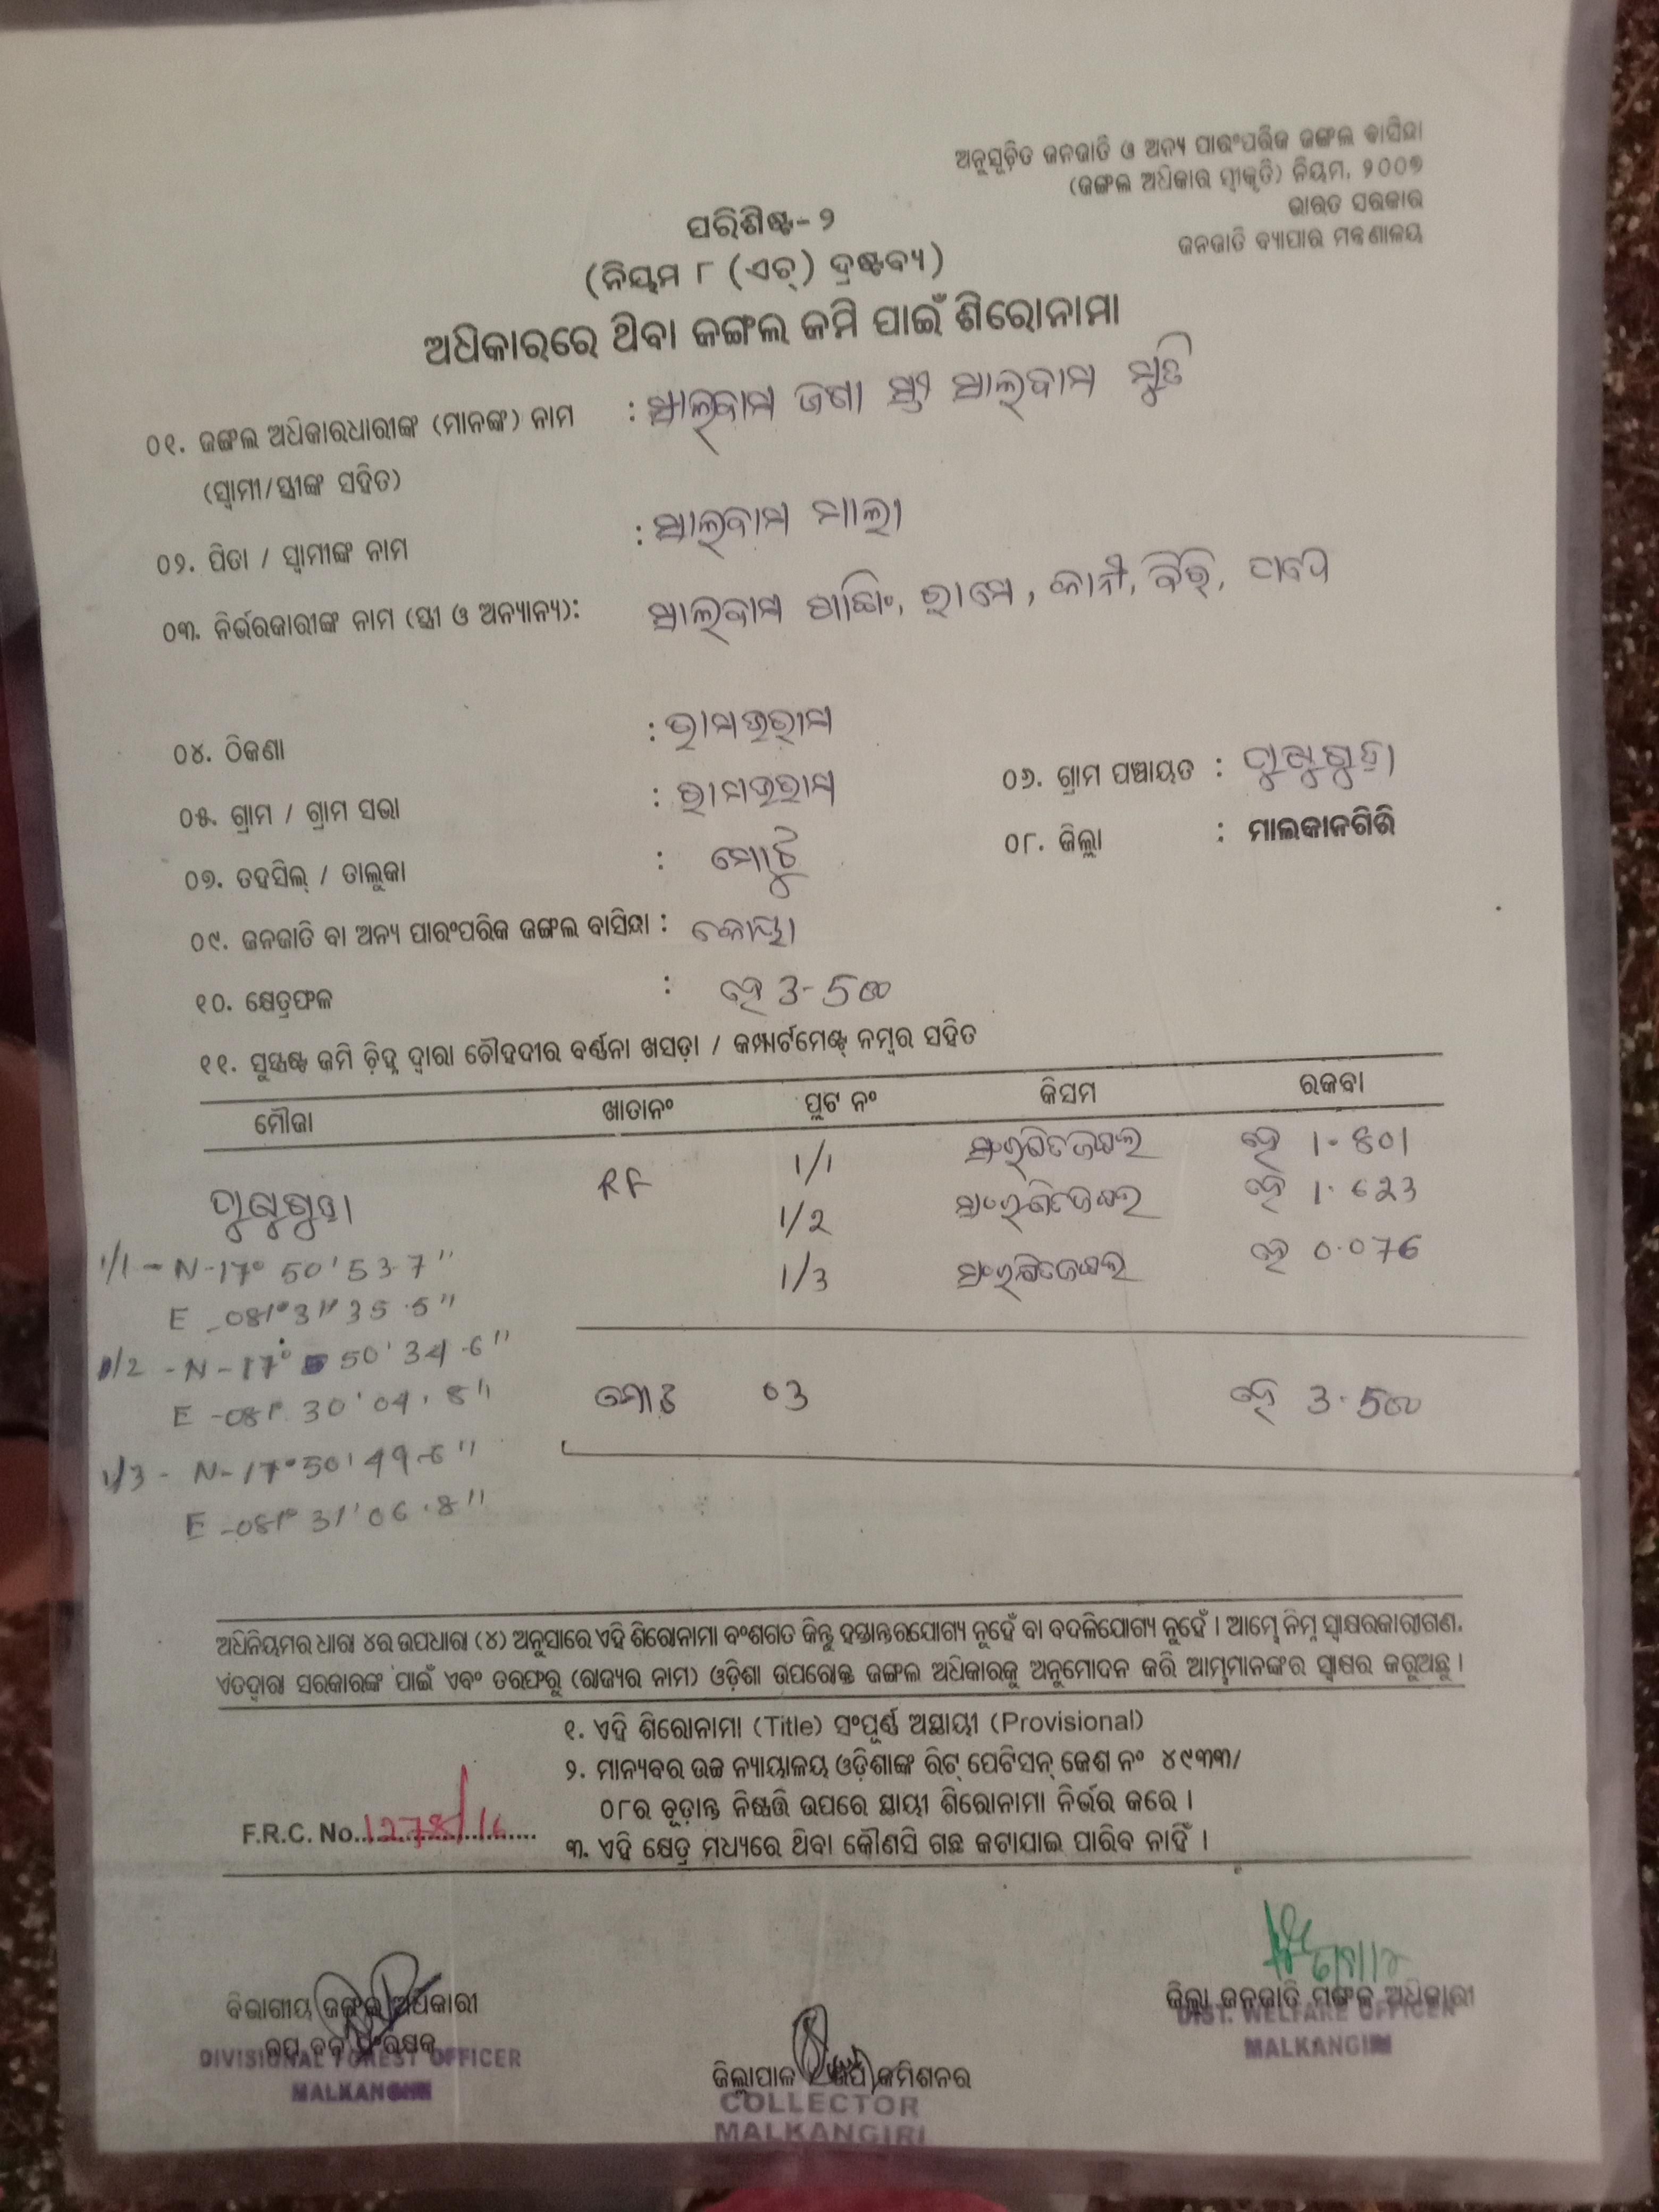 ଅନୁସୂଚିତ ଜନଜାତି ଓ ଅନ୍ୟ ପାରଂପରିକ ଜଙ୍ଗଲ ବାସିନ୍ଦା
(ଜଙ୍ଗଲ ଅଧିକାର ସ୍ୱୀକୃତି) ନିୟମ, ୨୦୦୭
ଭାରତ ସରକାର
ଜନଜାତି ବ୍ୟାପାର ମନ୍ତ୍ରଣାଳୟ
ପରିଶିଷ୍ଟ-୨
(ନିୟମ ୮ (ଏଚ୍) ଦ୍ରଷ୍ଟବ୍ୟ)
ଅଧିକାରରେ ଥିବା ଜଙ୍ଗଲ ଜମି ପାଇଁ ଶିରୋନାମା
୦୧. ଜଙ୍ଗଲ ଅଧିକାରଧାରୀଙ୍କ (ମାନଙ୍କ) ନାମ :
(ସ୍ୱାମୀ/ସ୍ତ୍ରୀଙ୍କ ସହିତ)
୦୨. ପିତା / ସ୍ୱାମୀଙ୍କ ନାମ :
୦୩. ନିର୍ଭରକାରୀଙ୍କ ନାମ (ସ୍ତ୍ରୀ ଓ ଅନ୍ୟାନ୍ୟ):
୦୪. ଠିକଣା :
୦୫. ଗ୍ରାମ / ଗ୍ରାମ ସଭା : ୦୬. ଗ୍ରାମ ପଞ୍ଚାୟତ :
୦୭. ତହସିଲ୍ / ତାଲୁକା : ମୋଟୁ ୦୮. ଜିଲ୍ଲା : ମାଲକାନଗିରି
୦୯. ଜନଜାତି ବା ଅନ୍ୟ ପାରଂପରିକ ଜଙ୍ଗଲ ବାସିନ୍ଦା : କୋୟା
୧୦. କ୍ଷେତ୍ରଫଳ : ହେ 3-500
୧୧. ସୁସ୍ପଷ୍ଟ ଜମି ଚିହ୍ନ ଦ୍ୱାରା ଚୌହଦୀର ବର୍ଣ୍ଣନା ଖସଡ଼ା / କମ୍ପାର୍ଟମେଣ୍ଟ୍ ନମ୍ବର ସହିତ
ମୌଜା ଖାତାନଂ ପ୍ଲଟ ନଂ କିସମ ରକବା
RF 1/1 ହେ 1.801
1/2 ହେ 1.623
1/3 ହେ 0.076
1/1 - N-17° 50' 53.7"
E -081° 31' 35.5"
1/2 - N-17° 50' 34.6"
E -081° 30' 04.8"
ମୋଟ 03 ହେ 3.500
1/3 - N-17° 50' 49.6"
E -081° 31' 06.8"
ଅଧିନିୟମର ଧାରା ୪ର ଉପଧାରା (୪) ଅନୁସାରେ ଏହି ଶିରୋନାମା ବଂଶଗତ କିନ୍ତୁ ହସ୍ତାନ୍ତରଯୋଗ୍ୟ ନୁହେଁ ବା ବଦଳିଯୋଗ୍ୟ ନୁହେଁ । ଆମ୍ଭେ ନିମ୍ନ ସ୍ୱାକ୍ଷରକାରୀଗଣ,
ଏତଦ୍ୱାରା ସରକାରଙ୍କ ପାଇଁ ଏବଂ ତରଫରୁ (ରାଜ୍ୟର ନାମ) ଓଡ଼ିଶା ଉପରୋକ୍ତ ଜଙ୍ଗଲ ଅଧିକାରକୁ ଅନୁମୋଦନ କରି ଆମ୍ଭମାନଙ୍କର ସ୍ୱାକ୍ଷର କରୁଅଛୁ ।
୧. ଏହି ଶିରୋନାମା (Title) ସଂପୂର୍ଣ୍ଣ ଅସ୍ଥାୟୀ (Provisional)
୨. ମାନ୍ୟବର ଉଚ୍ଚ ନ୍ୟାୟାଳୟ ଓଡ଼ିଶାଙ୍କ ରିଟ୍ ପେଟିସନ୍ କେଶ ନଂ ୪୯୩୩/
୦୮ର ଚୂଡ଼ାନ୍ତ ନିଷ୍ପତ୍ତି ଉପରେ ସ୍ଥାୟୀ ଶିରୋନାମା ନିର୍ଭର କରେ ।
F.R.C. No. 1278/16
୩. ଏହି କ୍ଷେତ୍ର ମଧ୍ୟରେ ଥିବା କୌଣସି ଗଛ କଟାଯାଇ ପାରିବ ନାହିଁ ।
ବିଭାଗୀୟ ଜଙ୍ଗଲ ଅଧିକାରୀ
ଉପ ବନ ସଂରକ୍ଷକ
DIVISIONAL FOREST OFFICER
MALKANGIRI
ଜିଲ୍ଲାପାଳ ଉପ କମିଶନର
COLLECTOR
MALKANGIRI
ଜିଲ୍ଲା ଜନଜାତି ମଙ୍ଗଳ ଅଧିକାରୀ
DIST. WELFARE OFFICER
MALKANGIRI